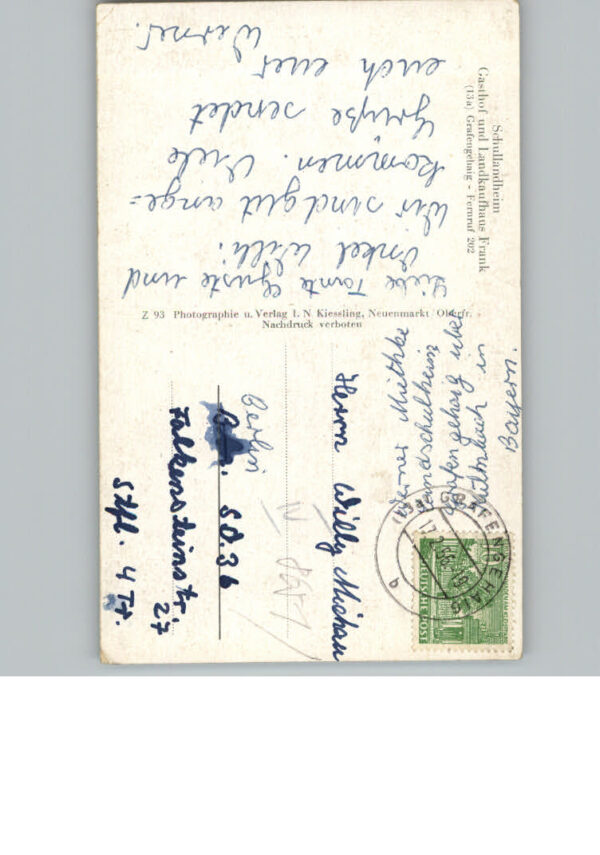 Schullandheim
Gasthof und Landkaufhaus Frank
(13a) Grafengehaig - Fernruf 202
Liebe Tante Guste und
Onkel Willi!
Wir sind gut ange=
kommen. Viele
Grüße sendet
euch euer
Werner.
Z 93 Photographie u. Verlag L. N. Kiessling, Neuenmarkt Oberfr. -
Nachdruck verboten
Werner Miethke
Landschulheim
Grafengehaig über
Kulmbach in
Bayern.
Herrn Willy Michan
Berlin
SO.36
Falkensteinstr.
27
Stfl. 4 Tr.
(13a) GRAFENGEHAIG
b
DEUTSCHE POST